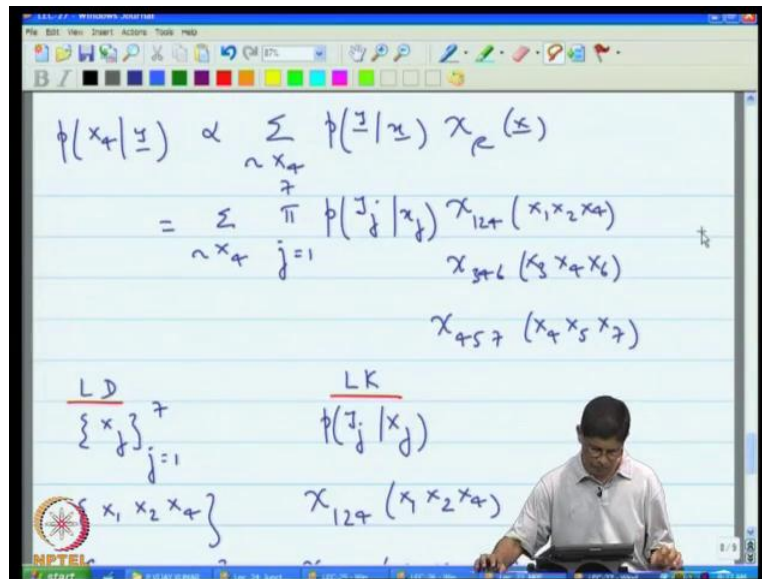 LEC-27 - Windows Journal
File Edit View Insert Actions Tools Help
87%
B I
p(x₄|y) ∝ Σ_{~x₄} p(y|x) χ_e(x)
= Σ_{~x₄} π_{j=1}^{7} p(y_j|x_j) χ₁₂₄(x₁x₂x₄)
χ₃₄₆(x₃x₄x₆)
χ₄₅₇(x₄x₅x₇)
LD LK
{x_j}_{j=1}^{7} p(y_j|x_j)
x₁x₂x₄} χ₁₂₄(x₁x₂x₄)
NPTEL
8/9
start